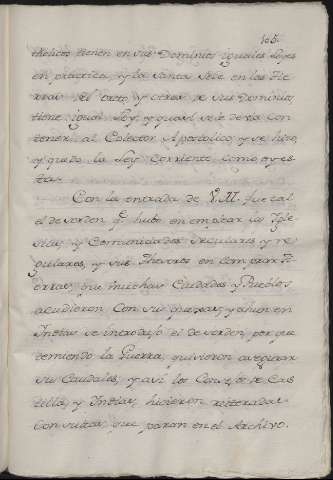 105.
tholicos tienen en sus Dominios iguales Leyes
en practica, y la Santa Sede en las Tie
rras de esto, y otras de sus Dominios,
tiene igual Ley, y quasi se le dio con
tener al Colector Apostolico, y se hizo,
y quedo la Ley Corriente como oy es
ta.
Con la entrada de V. M. fue tal
el desorden q.e hubo en emplear las Ygle
sias, y Comunidades Seculares y re
gulares, y sus Thesoros en comprar Ti
erras, que muchas Ciudades y Pueblos
acudieron con sus quejas, y aun en
Indias se introdujo el desorden, por que
temiendo la Guerra, quisieron asegurar
sus Caudales, y asi los Consejos de Cas
tilla, y Indias, hicieron reiteradas
Consultas, que paran en el Archivo.